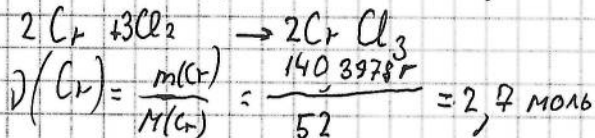 2Cr + 3Cl₂ → 2CrCl₃
ν(Cr) = m(Cr)/M(Cr) = 140,3978г/52 = 2,7 моль